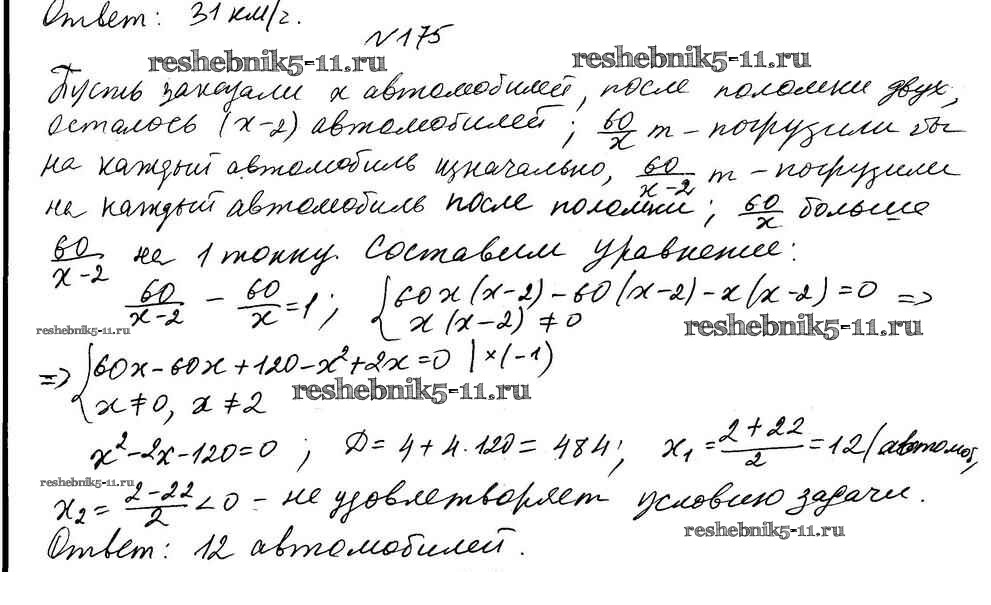 Ответ: 31 км/г.
№175
reshebnik5-11.ru reshebnik5-11.ru
Пусть заказали x автомобилей, после поломки двух,
осталось (x-2) автомобилей; 60/x т - погрузили бы
на каждый автомобиль изначально, 60/(x-2) т - погрузили
на каждый автомобиль после поломки; 60/x больше
60/(x-2) на 1 тонну. Составим уравнение:
60/(x-2) - 60/x = 1; { 60x(x-2) - 60(x-2) - x(x-2) = 0 =>
x(x-2) ≠ 0
reshebnik5-11.ru reshebnik5-11.ru
=> { 60x - 60x + 120 - x² + 2x = 0 | ×(-1)
x ≠ 0, x ≠ 2
reshebnik5-11.ru
x² - 2x - 120 = 0 ; D = 4 + 4·120 = 484; x₁ = (2+22)/2 = 12 (автомоб,
reshebnik5-11.ru
x₂ = (2-22)/2 < 0 - не удовлетворяет условию задачи.
reshebnik5-11.ru
Ответ: 12 автомобилей.